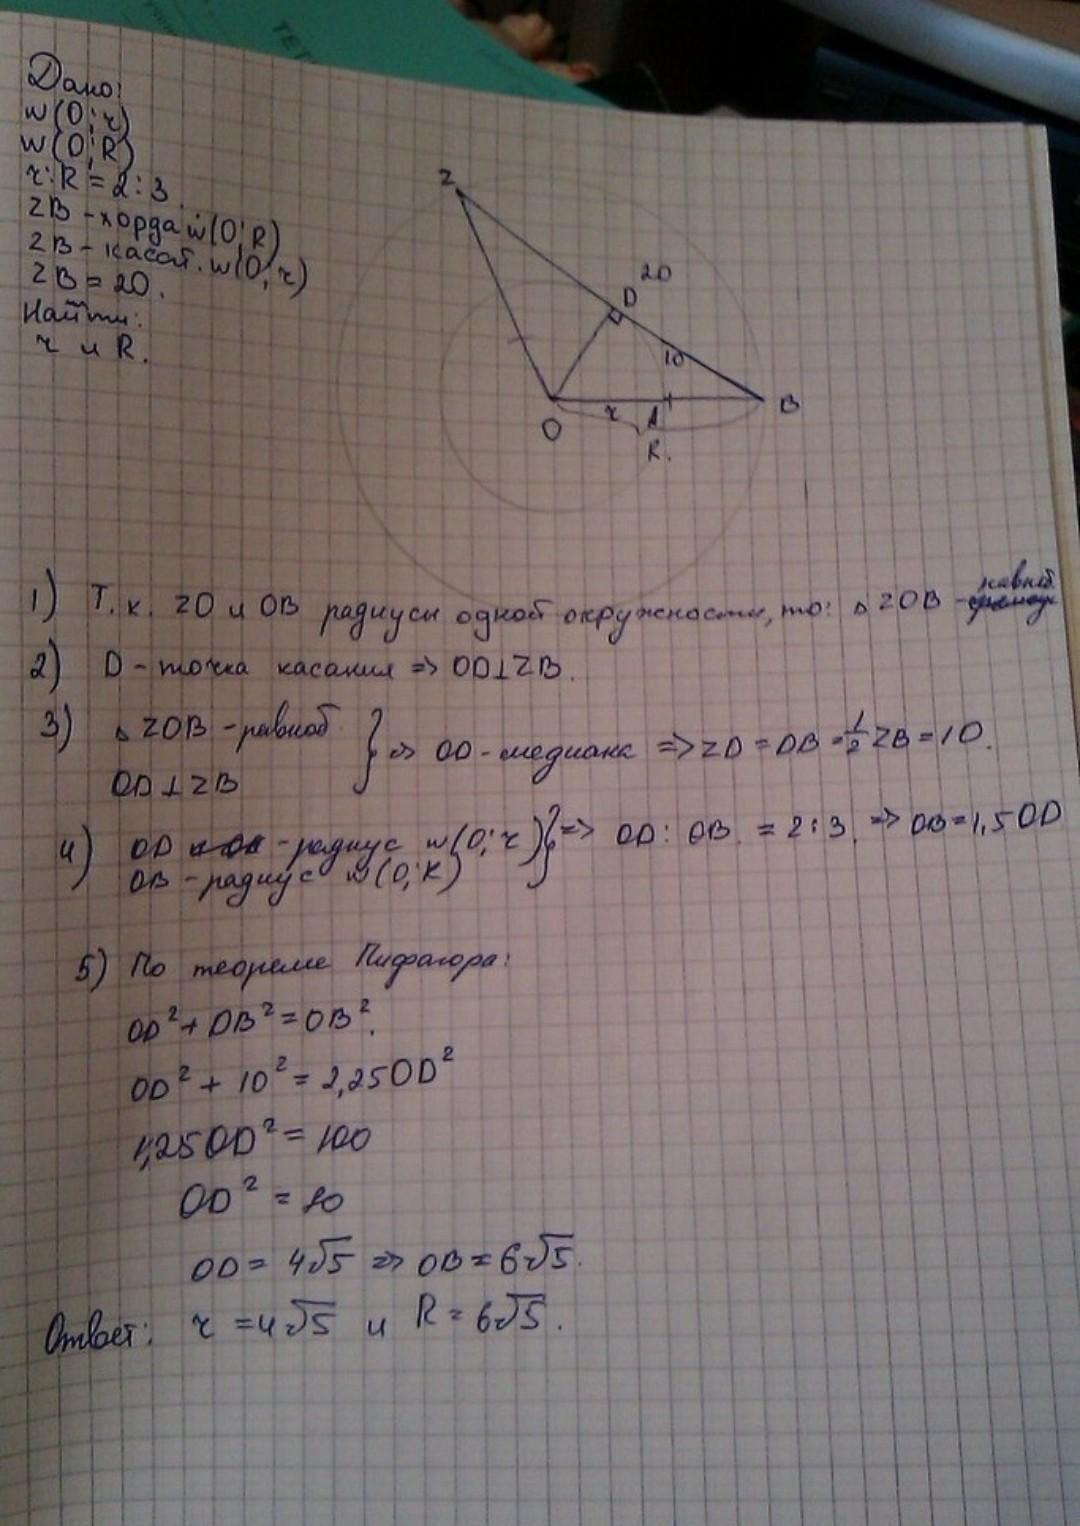 ТЕТ
Дано:
w(O; r)
w(O; R)
r:R = 2:3
ZB - хорда w(O; R)
ZB - касат. w(O, r)
ZB = 20.
Найти:
r и R.
Z
20
D
10
r A B
O
R.
1) Т.к. ZO и OB радиусы одной окружности, то: △ZOB - равноб
2) D - точка касания => OD⊥ZB.
3) △ZOB - равноб. } => OD - медиана => ZD = DB = 1/2 ZB = 10.
OD⊥ZB
4) OD - радиус w(O; r) } => OD : OB = 2:3 => OB = 1,5OD
OB - радиус w(O; R)
5) По теореме Пифагора:
OD² + DB² = OB².
OD² + 10² = 2,25OD²
1,25OD² = 100
OD² = 80
OD = 4√5 => OB = 6√5.
Ответ: r = 4√5 и R = 6√5.